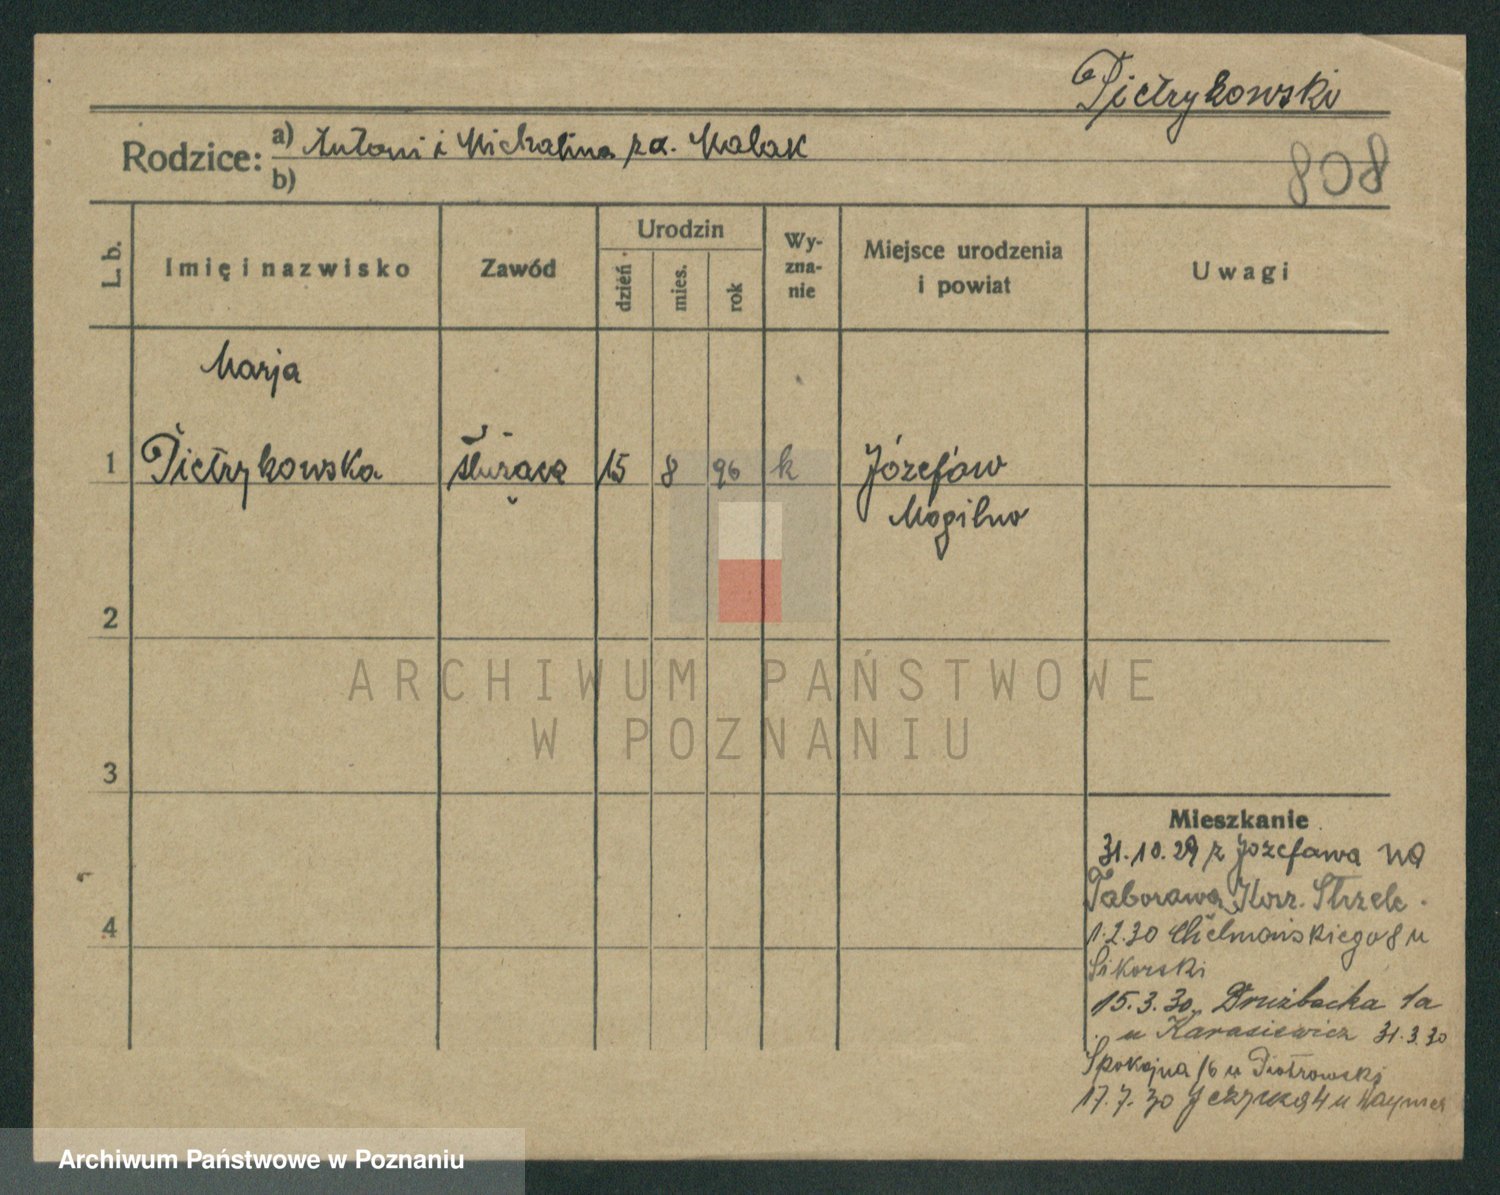 Pietrykowski
Rodzice: a) Antoni i Michalina za. Malak
b)
808
L. b.
Imię i nazwisko
Zawód
Urodzin
dzień
mies.
rok
Wy-
zna-
nie
Miejsce urodzenia
i powiat
Uwagi
Marja
1 Pietrykowska służąca 15 8 96 k Józefów
Mogilno
2
3
4
ARCHIWUM PAŃSTWOWE
W POZNANIU
Mieszkanie
31.10.29 z Józefowa na
Taborowa Kosz. Strzelc.
1.2.30 Chełmońskiego 8 u
Sikorski
15.3.30. Drużbacka 1a
u Karasiewicz 31.3.30
Spokojna 16 u Piotrowski
17.7.30 u
Archiwum Państwowe w Poznaniu